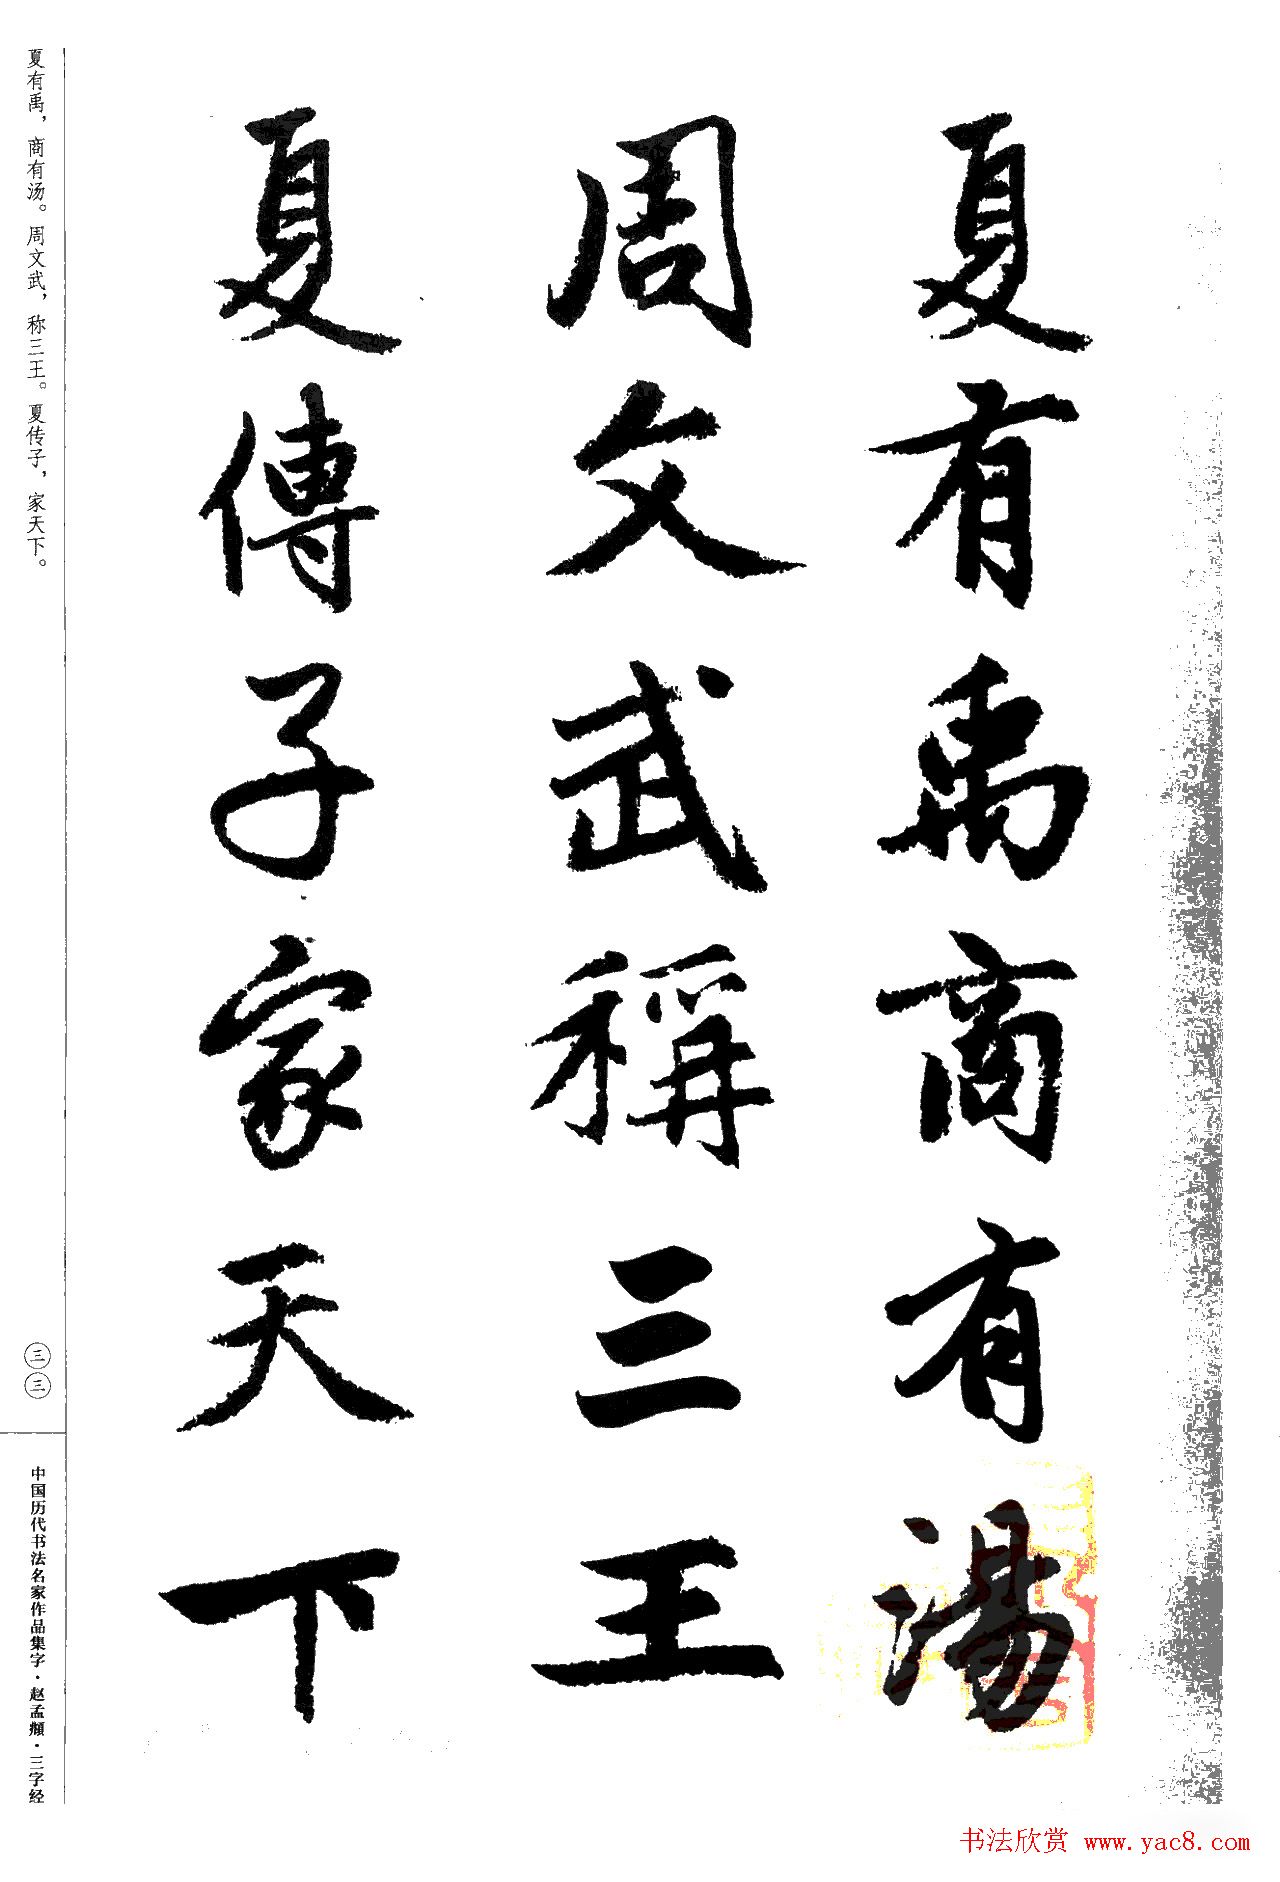 夏有禹商有湯
周文武稱三王
夏傳子家天下
夏有禹，商有汤。周文武，称三王。夏传子，家天下。
三三
中国历代书法名家作品集字·赵孟頫·三字经
书法欣赏 www.yac8.com